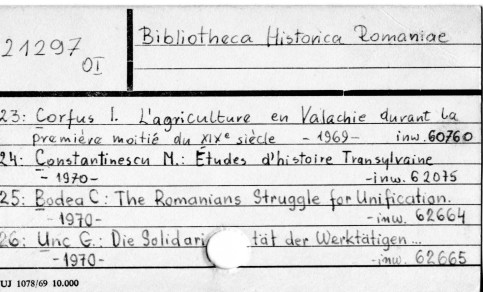 21297 OI
Bibliotheca Historica Romaniae
23: Corfus I. L'agriculture en Valachie durant la
première moitié du XIXe siècle - 1969- inw. 60760
24: Constantinescu M.: Études d'histoire Transylvaine
- 1970- -inw. 62075
25: Bodea C: The Romanians Struggle for Unification.
-1970- -inw. 62664
26: Unc G.: Die Solidarität der Werktätigen...
-1970- -inw. 62665
UJ 1078/69 10.000